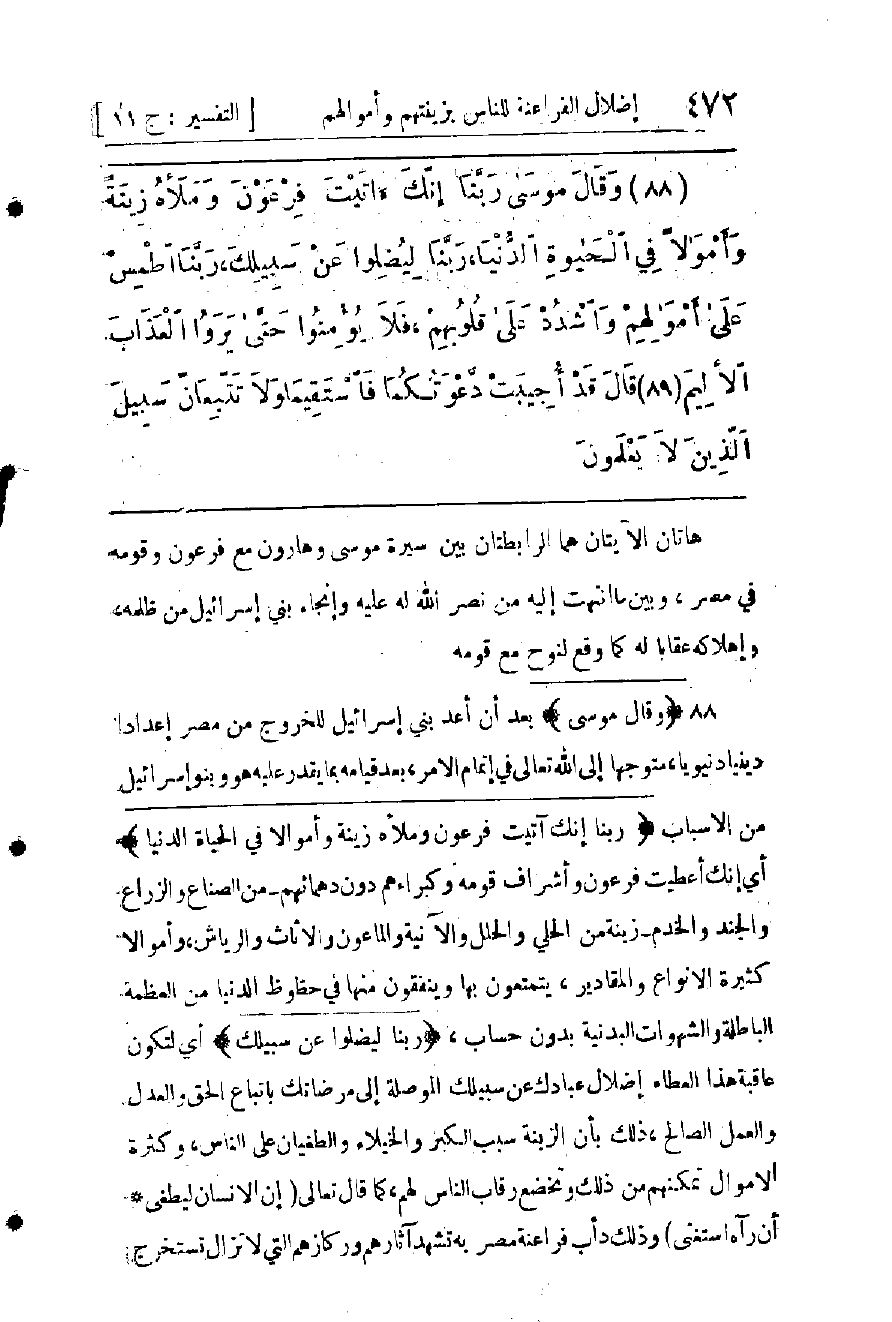 ٤٧٢ إضلال الفراعنة للناس بزينتهم وأموالهم [ التفسير : ج ١١ ]
(٨٨) وَقَالَ مُوسَىٰ رَبَّنَا إِنَّكَ ءَاتَيْتَ فِرْعَوْنَ وَمَلَأَهُ زِينَةً
وَأَمْوَٰلاً فِي ٱلْحَيَوٰةِ ٱلدُّنْيَا، رَبَّنَا لِيُضِلُّوا عَنْ سَبِيلِكَ، رَبَّنَا ٱطْمِسْ
عَلَىٰ أَمْوَٰلِهِمْ وَٱشْدُدْ عَلَىٰ قُلُوبِهِمْ ، فَلَا يُؤْمِنُوا حَتَّىٰ يَرَوُا ٱلْعَذَابَ
ٱلْأَلِيمَ (٨٩) قَالَ قَدْ أُجِيبَتْ دَّعْوَتُكُمَا فَٱسْتَقِيمَا وَلَا تَتَّبِعَانِّ سَبِيلَ
ٱلَّذِينَ لَا يَعْلَمُونَ
هاتان الآيتان هما الرابطتان بين سيرة موسى وهارون مع فرعون وقومه
في مصر ، وبين ما انتهت إليه من نصر الله له عليه وإنجاء بني إسرائيل من ظلمه،
وإهلاكه عقابا له كما وقع لنوح مع قومه
٨٨ ﴿ وقال موسى ﴾ بعد أن أعد بني إسرائيل للخروج من مصر إعدادا
دينيا دنيويا، متوجها إلى الله تعالى في إتمام الامر ، بعد قيامه بما يقدر عليه هو وبنو إسرائيل
من الاسباب ﴿ ربنا إنك آتيت فرعون وملأه زينة وأموالا في الحياة الدنيا ﴾
أي إنك أعطيت فرعون وأشراف قومه وكبراءهم دون دهمائهم ـ من الصناع والزراع
والجند والخدم ـ زينة من الحلي والحلل والآنية والماعون والاثاث والرياش، وأموالا
كثيرة الانواع والمقادير ، يتمتعون بها وينفقون منها في حظوظ الدنيا من العظمة
الباطلة والشهوات البدنية بدون حساب ، ﴿ ربنا ليضلوا عن سبيلك ﴾ أي لتكون
عاقبة هذا العطاء إضلال عبادك عن سبيلك الموصلة إلى مرضاتك باتباع الحق والعدل
والعمل الصالح ، ذلك بأن الزينة سبب الكبر والخيلاء والطغيان على الناس، وكثرة
الاموال تمكنهم من ذلك وتخضع رقاب الناس لهم، كما قال تعالى ( إن الانسان ليطغى *
أن رآه استغنى ) وذلك دأب فراعنة مصر به تشهد آثارهم وركازهم التي لا تزال تستخرج